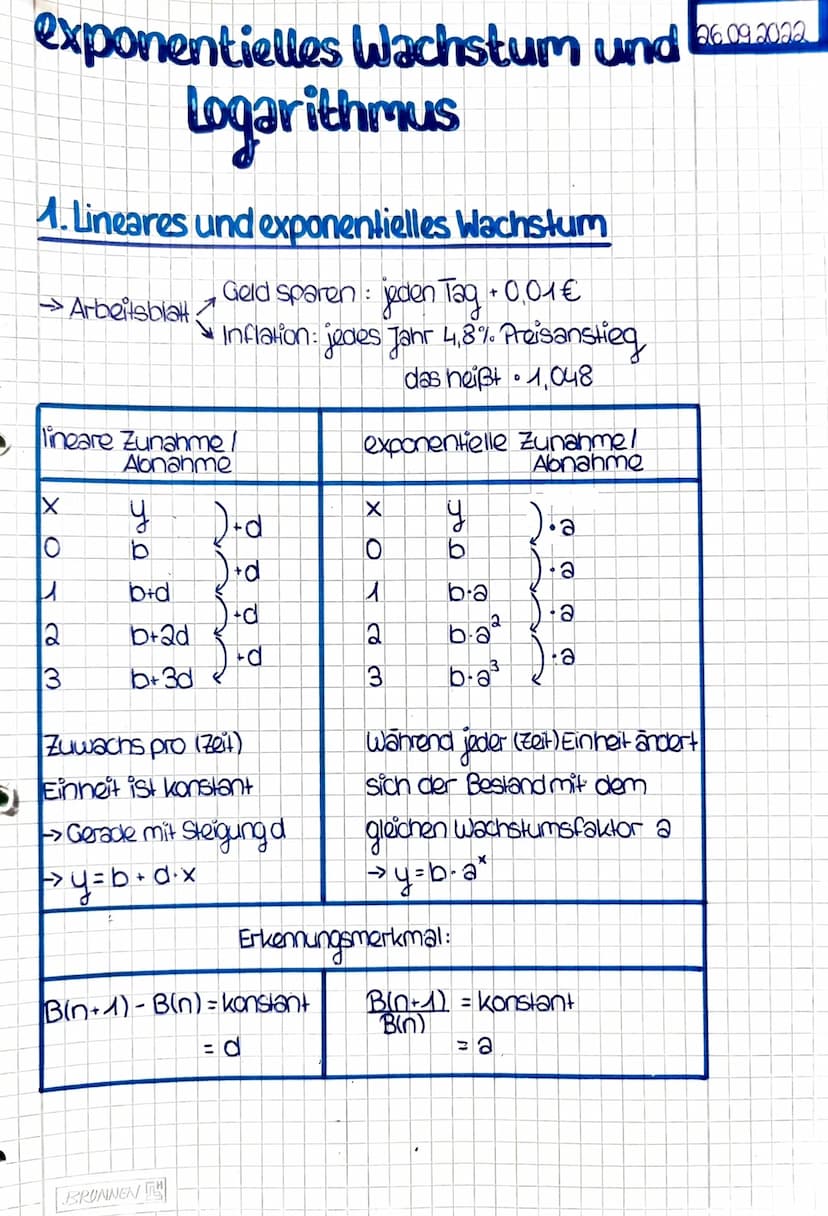 exponentielles Wachstum und
26.09.2022
Logarithmus
1. Lineares und exponentielles Wachstum
→ Arbeitsblatt
↗ Geld sparen: jeden Tag + 0,01€
↘ Inflation: jedes Jahr 4,8% Preisanstieg
das heißt · 1,048
lineare Zunahme /
Abnahme
x y
0 b
1 b+d
2 b+2d
3 b+3d
+d
+d
+d
+d
Zuwachs pro (Zeit)
Einheit ist konstant
→ Gerade mit Steigung d
→ y = b + d·x
exponentielle Zunahme /
Abnahme
x y
0 b
1 b·a
2 b·a²
3 b·a³
·a
·a
·a
·a
Während jeder (Zeit) Einheit ändert
sich der Bestand mit dem
gleichen Wachstumsfaktor a
→ y = b·aˣ
Erkennungsmerkmal:
B(n+1) - B(n) = konstant
= d
B(n+1) = konstant
B(n)
= a
BRUNNEN